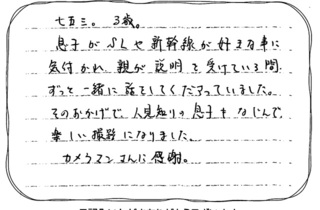 七五三。 3歳。
息子がSLや新幹線が好きな事に
気付かれ、親が説明を受けている間、
ずっと一緒に話をしてくださっていました。
そのおかげで、人見知りの息子もなじんで、
楽しい撮影になりました。
カメラマンさんに感謝。